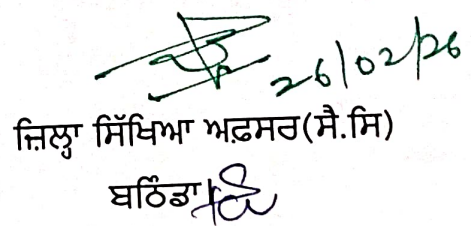 26/02/26
ਜ਼ਿਲ੍ਹਾ ਸਿੱਖਿਆ ਅਫ਼ਸਰ(ਸੈ.ਸਿ)
ਬਠਿੰਡਾ